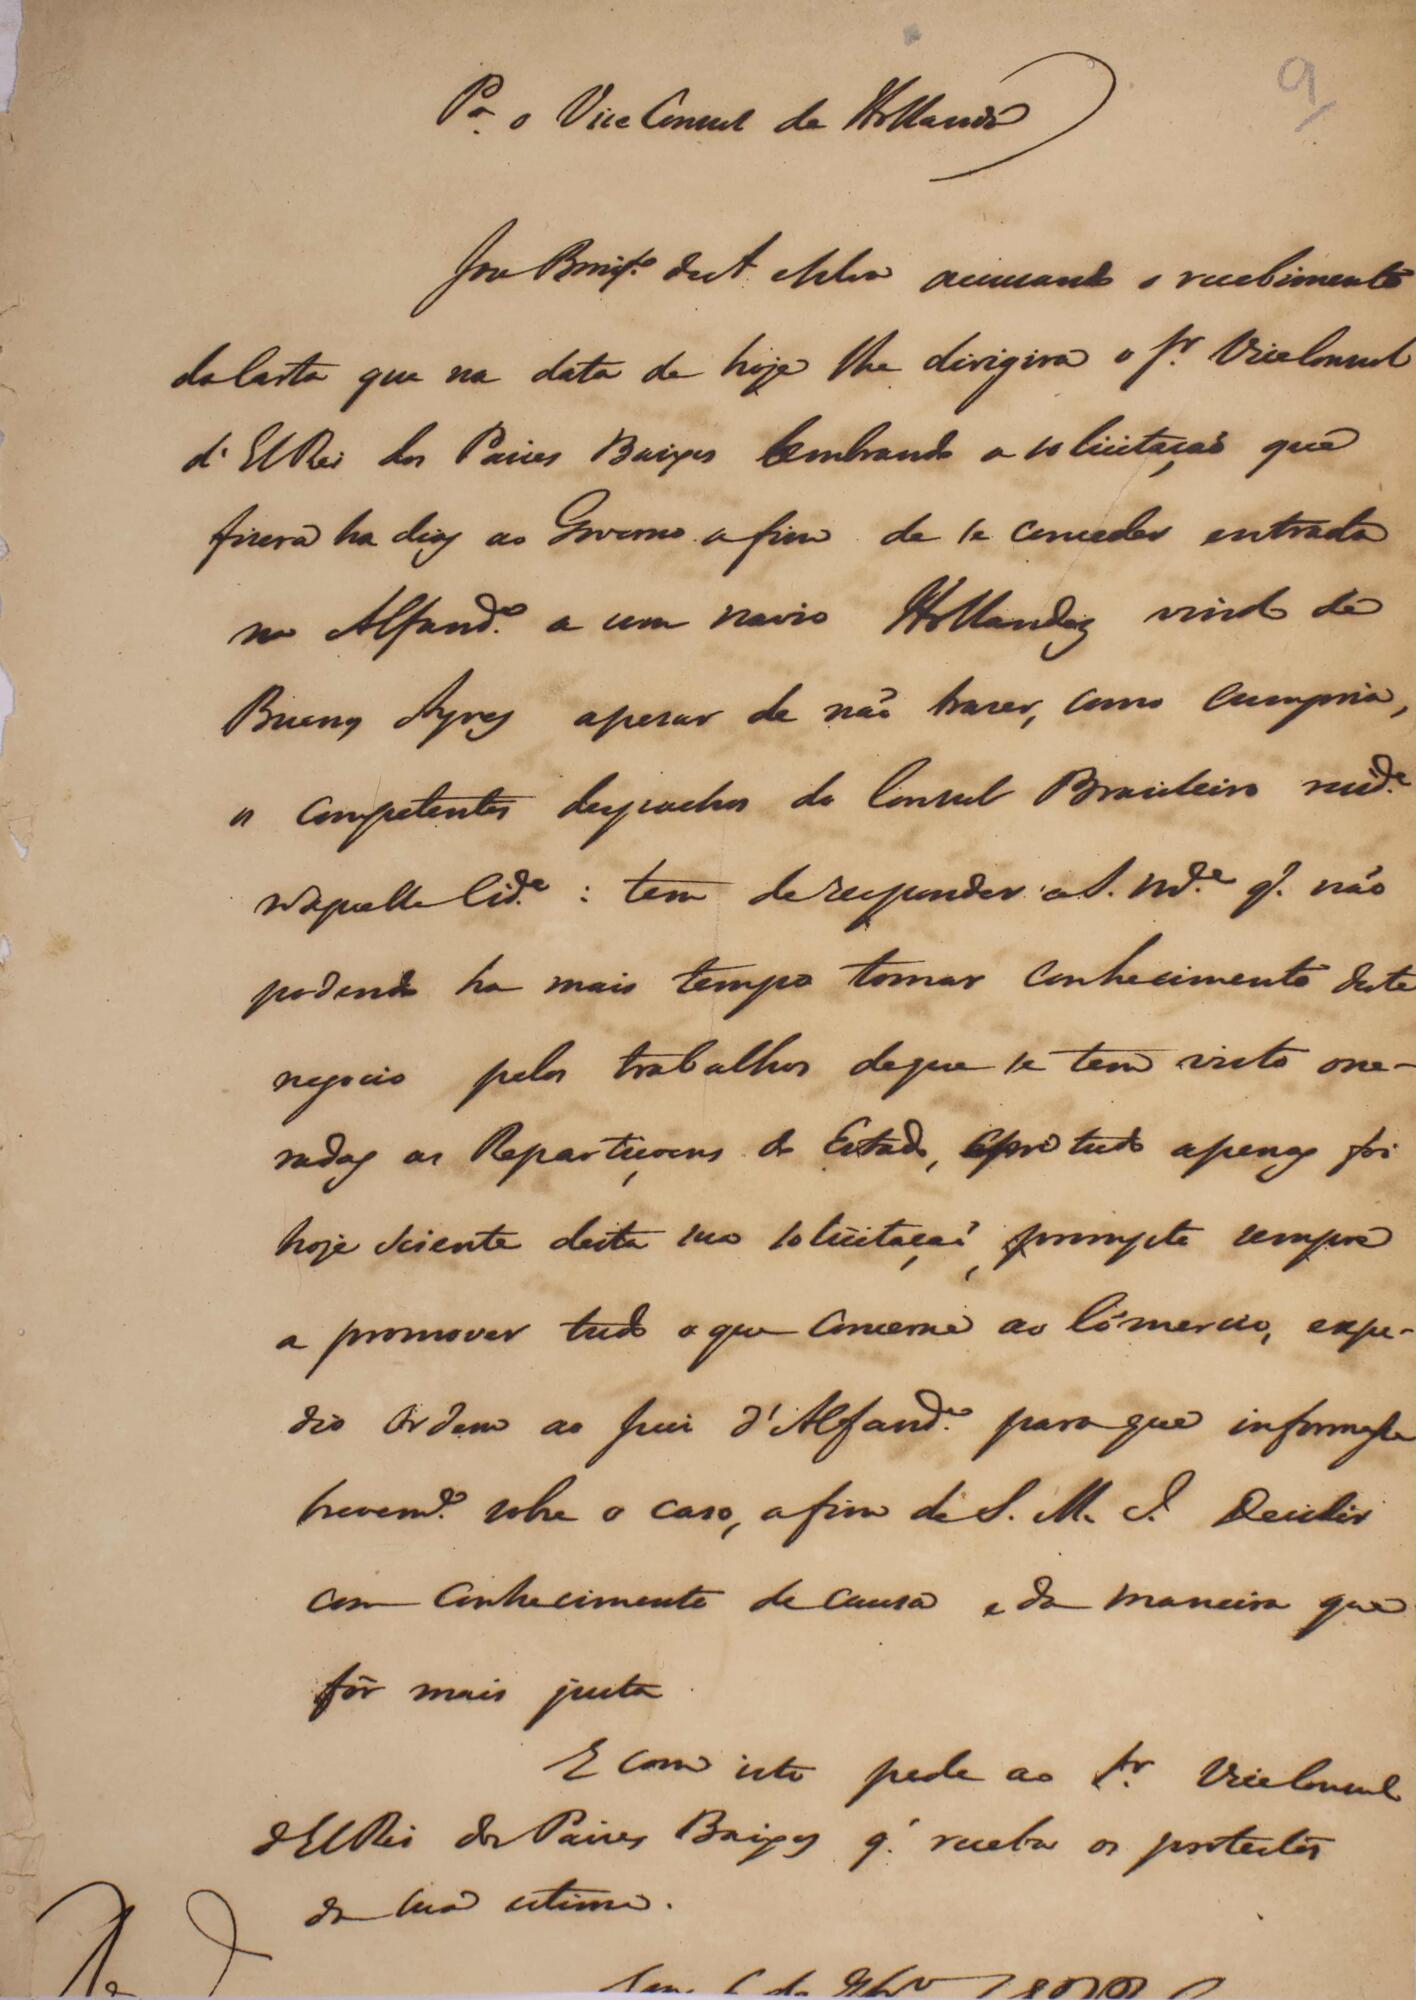 9
Pª. o Vice Consul de Hollanda
Joze Bonif.º de A. e Silva accusando o recebimento
da Carta que na data de hoje lhe dirigira o Sr. Vice Consul
d'ElRei dos Paizes Baixos lembrando a solicitação que
fizera ha dias ao Governo afim de se conceder entrada
na Alfand.ª a um navio Hollandez vindo de
Buenos Ayres apezar de não trazer, como cumpria,
os competentes despachos do Consul Brazileiro resid.e
n'aquella Cid.e : tem de responder a S. M.ce q. não
podendo ha mais tempo tomar conhecimento deste
negocio pelos trabalhos de que se tem visto one-
radas as Repartiçoens do Estado, tudo apenas foi
hoje sciente desta sua solicitaçaõ, prompto sempre
a promover tudo o que concerne ao Cõmercio, expe-
dio Ordem ao Juiz d'Alfand.ª para que informasse
brevem.e sobre o caso, afim de S. M. I. Decidir
com conhecimento de causa e da maneira que
fôr mais justa
E com isto pede ao Sr. Vice Consul
d'ElRei dos Paizes Baixos q. receba os protestos
da sua estima.